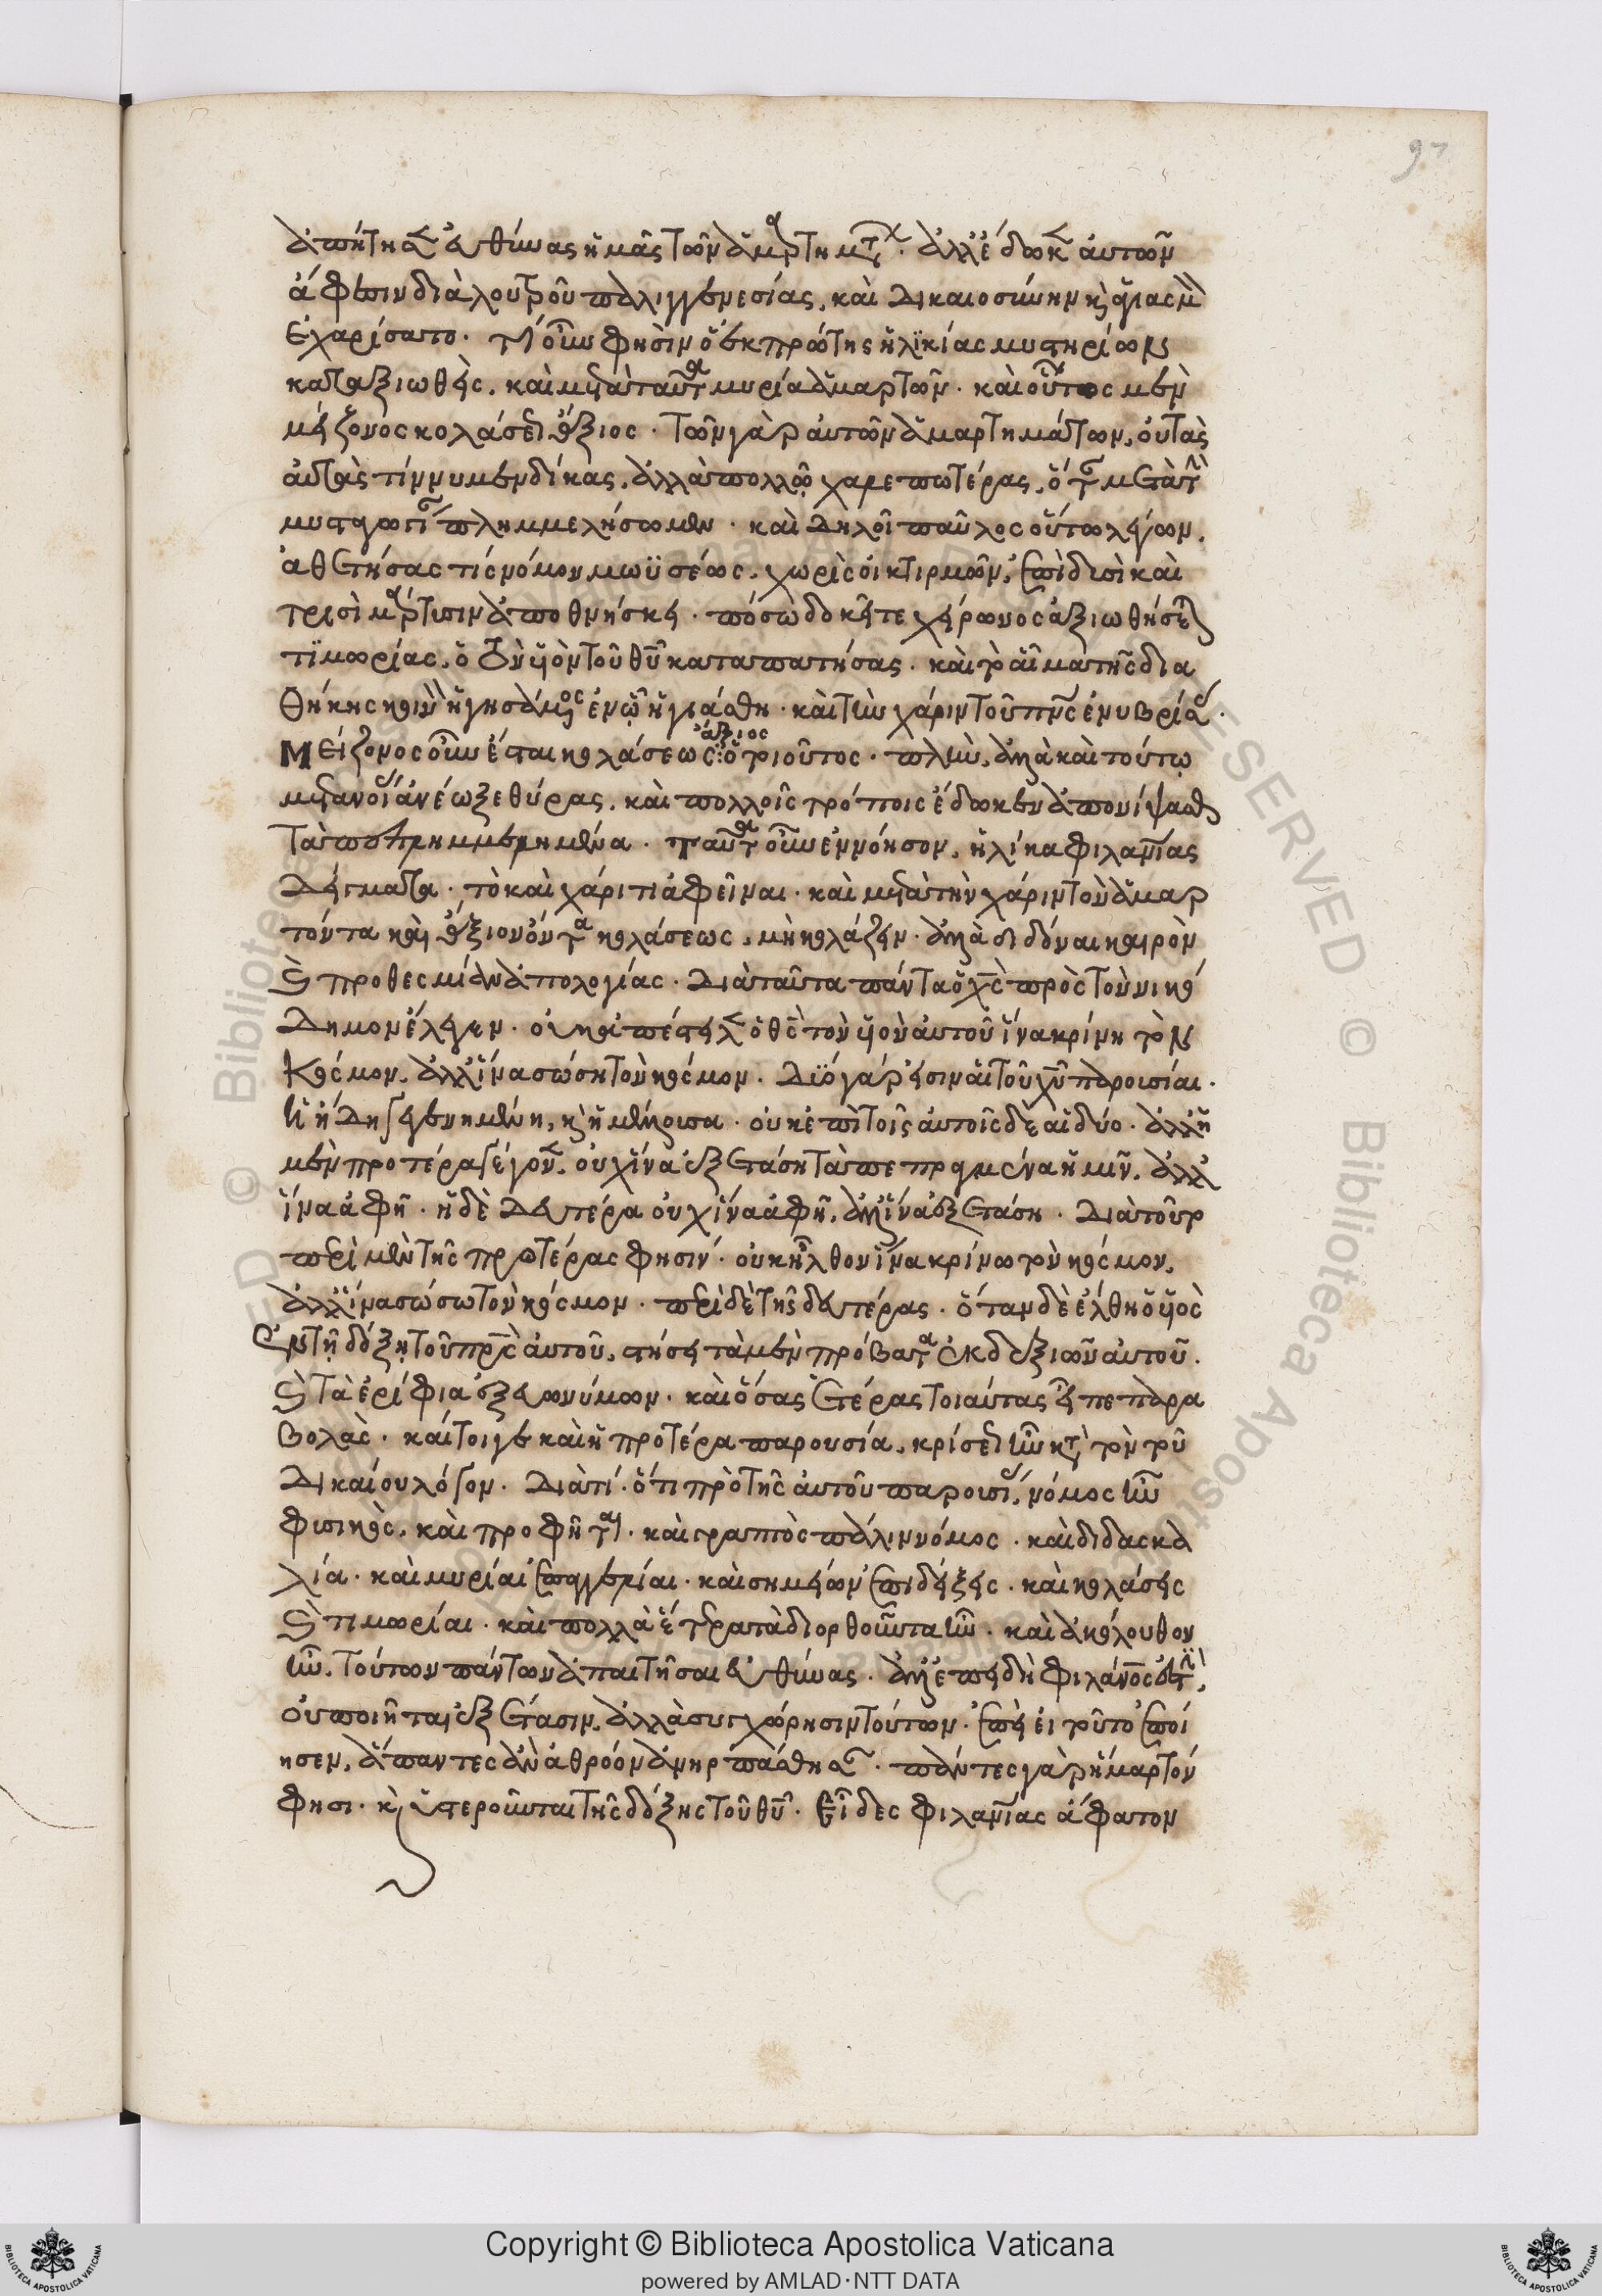 97
ἀπήτησεν εὐθύνας ἡμᾶς τῶν ἁμαρτημάτων. ἀλλ' ἔδωκεν αὐτῶν
ἄφεσιν διὰ λουτροῦ παλιγγενεσίας, καὶ δικαιοσύνην κὶ ἁγιασμὸν
ἐχαρίσατο. τί οὖν φησὶν ὁ ἐκ πρώτης ἡλϊκίας μυστηρίων
καταξιωθεὶς, καὶ μετὰ ταῦτα μυρία ἁμαρτῶν. καὶ οὗτος μὲν
μείζονος κολάσεως ἄξιος. τῶν γὰρ αὐτῶν ἁμαρτημάτων, οὐ τὰς
αὐτὰς τίννυμεν δίκας, ἀλλὰ πολλῷ χαλεπωτέρας, ὅταν μετὰ τὴν
μυσταγωγίαν πλημμελήσωμεν. καὶ δηλοῖ παῦλος οὕτω λέγων,
ἀθετήσας τίς νόμον μωϋσέως, χωρὶς οἰκτιρμῶν, ἐπὶ δυσὶ καὶ
τρισὶ μάρτυσιν ἀποθνήσκει. πόσω δοκεῖτε χείρωνος ἀξιωθήσεται
τϊμωρίας, ὁ τὸν ὑϊὸν τοῦ θῦ καταπατήσας. καὶ τὸ αἷμα τῆς δια
θήκης κοινὸν ἡγησάμενος ἐν ᾧ ἡγιάσθη. καὶ τὴν χάριν τοῦ πνς ἐνυβρίσας.
Μείζονος οὖν ἔσται κολάσεως ἄξιος ὁ τοιοῦτος. πλὴν, ἀλλὰ καὶ τούτῳ
μετανοίας ἀνέωξε θύρας, καὶ πολλοῖς τρόποις ἔδωκεν ἀπονίψασθαι
τὰ πεπλημμελημένα. ταῦτα οὖν ἐννόησον, ἡλίκα φιλανίας
δείγματα. τὸ καὶ χάριτι ἀφεῖναι. καὶ μετὰ τὴν χάριν τὸν ἁμαρ
τόντα καὶ ἄξιον ὄντα κολάσεως, μὴ κολάζειν. ἀλλὰ διδόναι καιρὸν
κὶ προθεσμίαν ἀπολογίας. διὰ ταῦτα πάντα ὁ χς πρὸς τὸν νικό
δημον ἔλεγεν. οὐκ ἀπέστειλεν ὁ θς τὸν ὑϊὸν αὐτοῦ ἵνα κρίνη τὸν
κόσμον, ἀλλ' ἵνα σώση τὸν κόσμον. δϋό γάρ εἰσιν αἱ τοῦ χῦ παρουσίαι.
κὶ ἡ ἤδη γεγενημένη, κὶ ἡ μέλλουσα. οὐκ ἐπὶ τοῖς αὐτοῖς δὲ αἱ δύο. ἀλλ' ἡ
μὲν προτέρα γέγονεν, οὐχ ἵνα ἐξετάση τὰ πεπραγμένα ἡμῖν, ἀλλ'
ἵνα ἀφῆ. ἡ δὲ δευτέρα οὐχ ἵνα ἀφῆ, ἀλλ' ἵνα ἐξετάση. διὰ τοῦτο
περὶ μὲν τῆς προτέρας φησίν. οὐκ ἦλθον ἵνα κρίνω τὸν κόσμον,
ἀλλ' ἵνα σώσω τὸν κόσμον. περὶ δὲ τῆς δευτέρας. ὅταν δὲ ἔλθη ὁ ὑϊὸς
ἐν τῇ δόξῃ τοῦ πρς αὐτοῦ, στήσει τὰ μὲν πρόβατα ἐκ δεξιῶν αὐτοῦ.
κὶ τὰ ἐρίφια ἐξ εὐωνύμων. καὶ ὅσας ἑτέρας τοιαύτας εἶπε παρα
βολὰς. καίτοιγε καὶ ἡ προτέρα παρουσία, κρίσεως ἦν κατὰ τὸν τοῦ
δικαίου λόγον. διὰ τί. ὅτι πρὸ τῆς αὐτοῦ παρουσίας, νόμος ἦν
φυσικὸς, καὶ προφῆται. καὶ γραπτὸς πάλιν νόμος. καὶ διδασκα
λία. καὶ μυρίαι ἐπαγγελίαι. καὶ σημείων ἐπιδείξεις. καὶ κολάσεις
κὶ τιμωρίαι. καὶ πολλὰ ἕτερα τὰ διορθοῦντα ἦν. καὶ ἀκόλουθον
ἦν, τούτων πάντων ἀπαιτῆσαι εὐθύνας. ἀλλ' ἐπειδὴ φιλάνος ἐστὶ,
οὐ ποιῆται ἐξέτασιν, ἀλλὰ συγχώρησιν τούτων. ἐπεὶ εἰ τοῦτο ἐποί
ησεν, ἅπαντες ἂν ἀθρόον ἀνηρπάσθησαν. πάντες γὰρ ἥμαρτόν
φησι. κὶ ὑστεροῦνται τῆς δόξης τοῦ θῦ. εἶδες φιλανίας ἄφατον
Copyright © Biblioteca Apostolica Vaticana
powered by AMLAD·NTT DATA